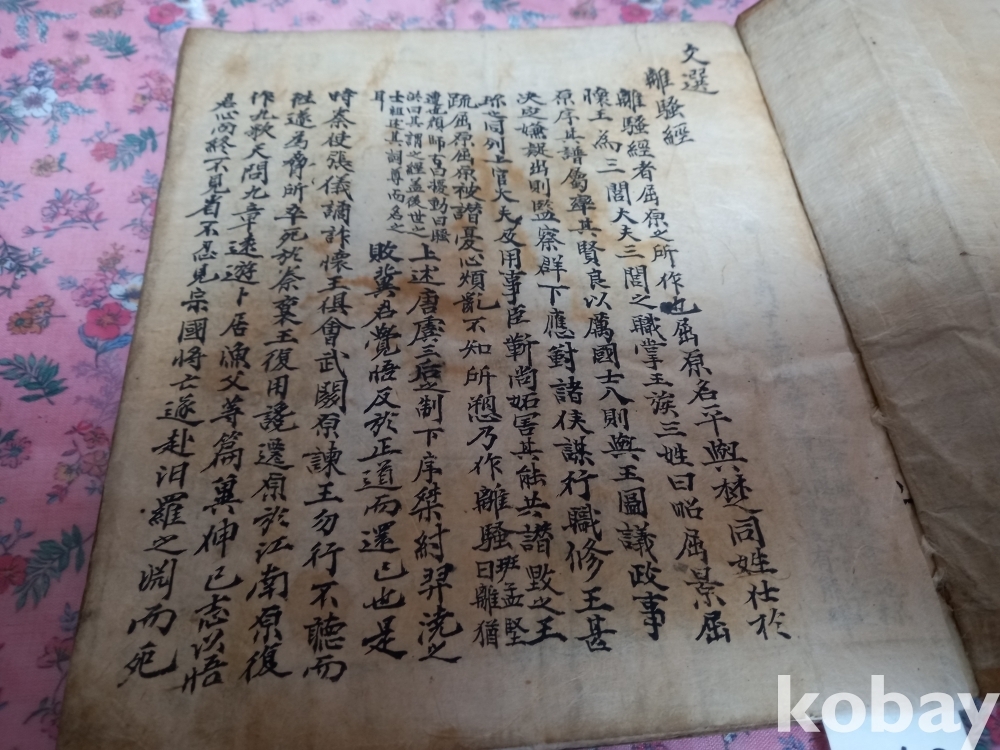 文選
離騷經
離騷經者屈原之所作也屈原名平與楚同姓仕於
懷王為三閭大夫三閭之職掌王族三姓曰昭屈景屈
原序其譜屬率其賢良以厲國士入則與王圖議政事
决定嫌疑出則監察群下應對諸侯謀行職修王甚
珍之同列上官大夫及用事臣靳尚妬害其能共譖毀之王
疏屈原屈原被譖憂心煩亂不知所愬乃作離騷班孟堅曰離猶
遭也顔師古曰擾動曰騷洪曰其謂之經蓋後世之上述唐虞三后之制下序桀紂羿澆之
士祖述其詞尊而名之耳敗冀君覺悟反於正道而還己也是
時秦使張儀譎詐懷王俱會武關原諫王勿行不聽而
往遂為脅所卒死於秦襄王復用讒遷原於江南原復
作九歌天問九章遠遊卜居漁父等篇冀伸己志以悟
君心而終不見省不忍見宗國將亡遂赴汨羅之淵而死
kobay